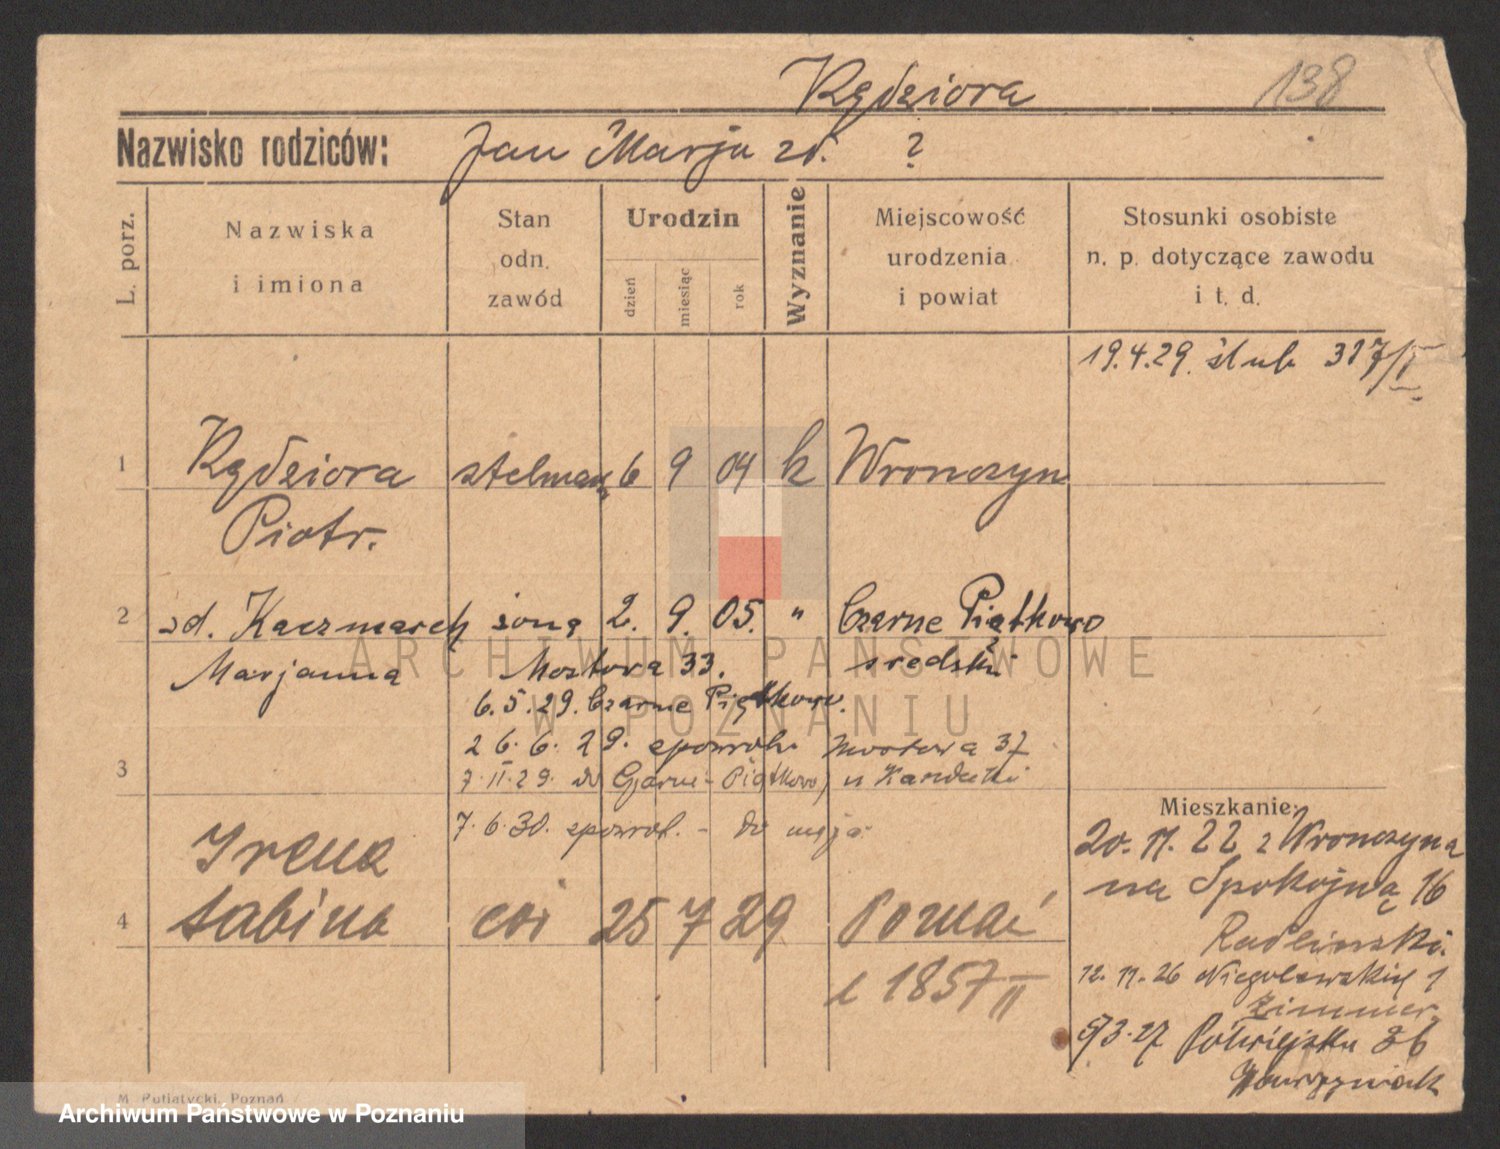 Kędziora 138
Nazwisko rodziców: Jan Marja zd. ?
L. porz.
Nazwiska
i imiona
Stan
odn.
zawód
Urodzin
dzień
miesiąc
rok
Wyznanie
Miejscowość
urodzenia
i powiat
Stosunki osobiste
n. p. dotyczące zawodu
i t. d.
19.4.29. ślub 317/I
1 Kędziora stelmach 6 9 04 k Wronczyn
Piotr.
2 zd. Kaczmarek żona 2. 9. 05. " Czarne Piątkowo
Marjanna Mostowa 33. średzki
6.5.29. Czarne Piątkowo.
26.6.29. spowrot. Mostowa 37
3 7.II.29. do Czarne-Piątkowo,
7.6.30. spowrot. - do męża.
Irena
4 Sabina cór 25 7 29 Poznań
1857 II
Mieszkanie:
20.11.22 z Wronczyna
na Spokojną 16
Radlinski.
12.11.26 Niegolewskich 1
Zimmer.
5/3.27 Półwiejska 36
Wawrzyniak
M. Putiatycki, Poznań
ARCHIWUM PAŃSTWOWE
W POZNANIU
Archiwum Państwowe w Poznaniu